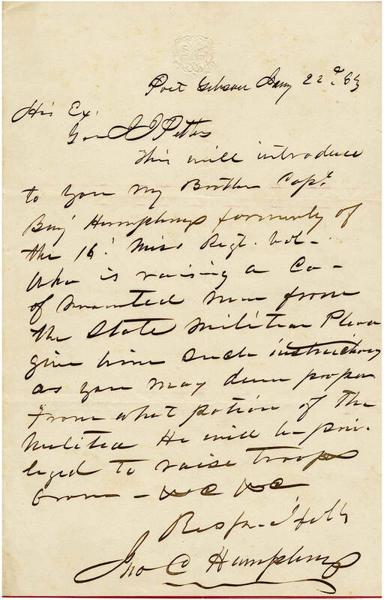 Port Gibson Jany 22d 63
His Ex:
Gov J J Pettus
This will introduce
to you my Brother Capt
Benj Humphreys formerly of
the 16' Miss Regt. Vol-
who is raising a Co-
of mounted men from
the State Militia Please
give him such instructions
as you may deem proper
From what potion of the
Militia He will be priv
leged to raise troops
from - &c &c
Respc-tfully
Jno C Humphreys